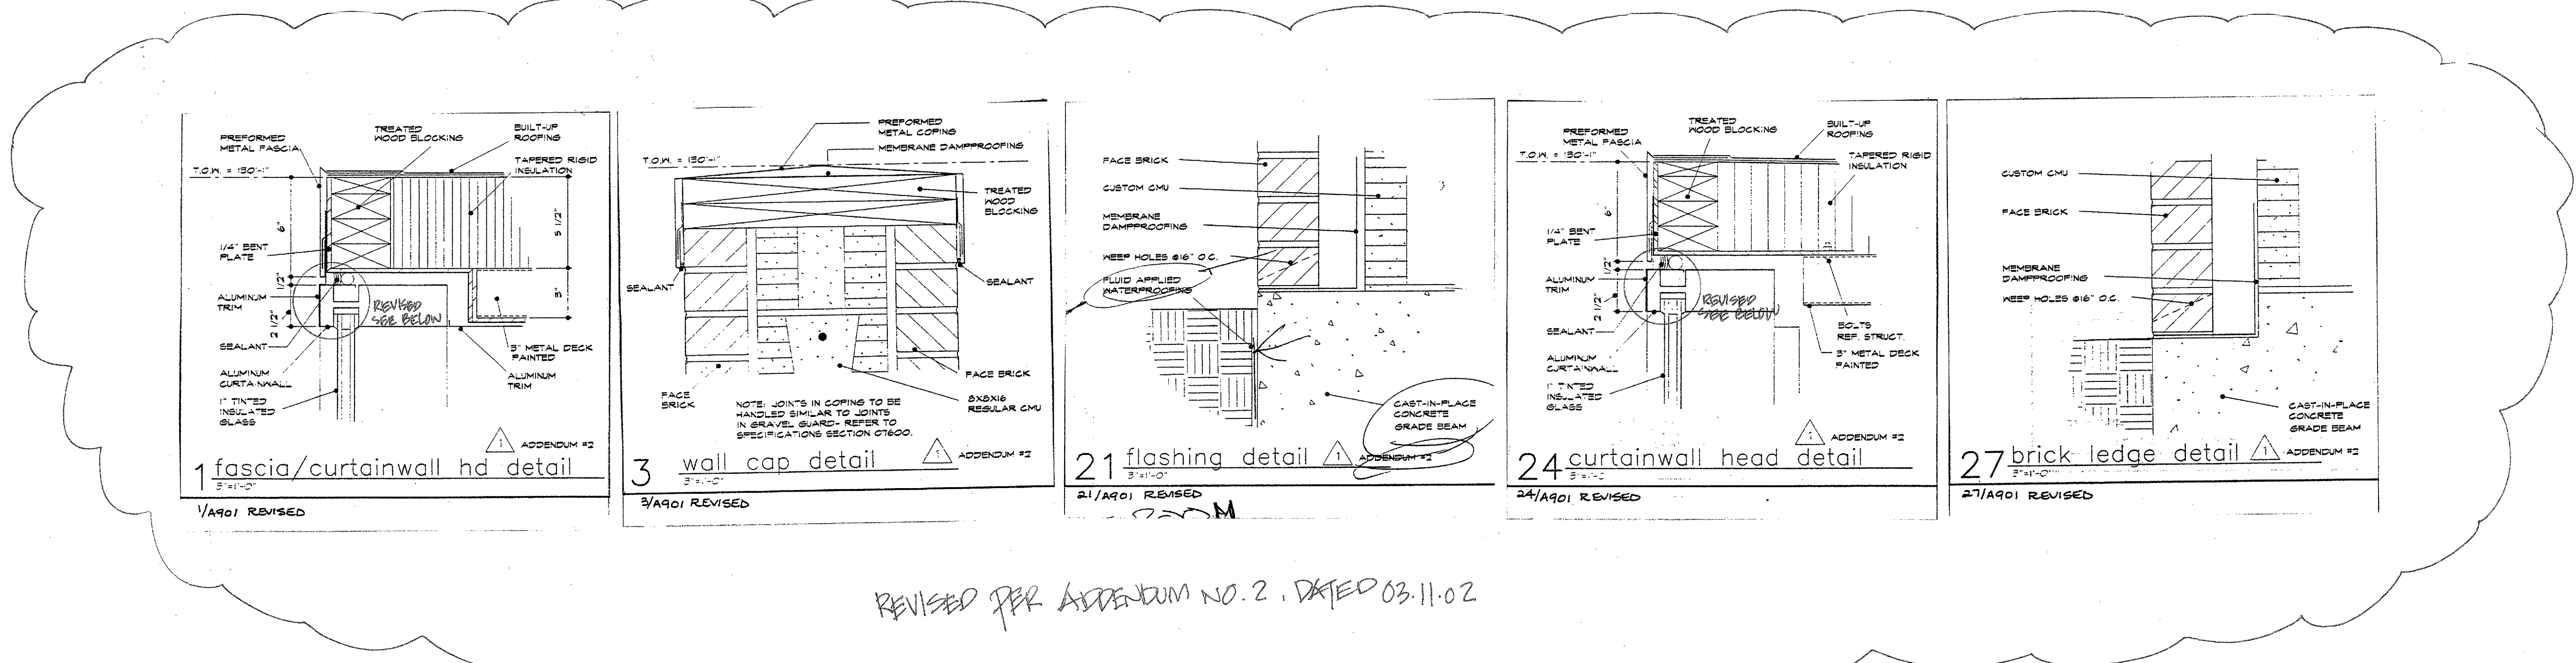 PREFORMED
METAL FASCIA
TREATED
WOOD BLOCKING
BUILT-UP
ROOFING
T.O.W. = 130'-1"
TAPERED RIGID
INSULATION
6"
5 1/2"
1/4" BENT
PLATE
1/2"
3"
ALUMINUM
TRIM
REVISED
SEE BELOW
2 1/2"
SEALANT
3" METAL DECK
PAINTED
ALUMINUM
CURTAINWALL
ALUMINUM
TRIM
1" TINTED
INSULATED
GLASS
1
ADDENDUM #2
1 fascia/curtainwall hd detail
3"=1'-0"
1/A901 REVISED
PREFORMED
METAL COPING
T.O.W. = 130'-1"
MEMBRANE DAMPPROOFING
TREATED
WOOD
BLOCKING
SEALANT
SEALANT
FACE BRICK
FACE
BRICK
8X8X16
REGULAR CMU
NOTE: JOINTS IN COPING TO BE
HANDLED SIMILAR TO JOINTS
IN GRAVEL GUARD- REFER TO
SPECIFICATIONS SECTION 07600.
1
ADDENDUM #2
3 wall cap detail
3"=1'-0"
3/A901 REVISED
FACE BRICK
CUSTOM CMU
MEMBRANE
DAMPPROOFING
WEEP HOLES @16" O.C.
FLUID APPLIED
WATERPROOFING
CAST-IN-PLACE
CONCRETE
GRADE BEAM
21 flashing detail
1
ADDENDUM #2
3"=1'-0"
21/A901 REVISED
PREFORMED
METAL FASCIA
TREATED
WOOD BLOCKING
BUILT-UP
ROOFING
T.O.W. = 130'-1"
TAPERED RIGID
INSULATION
6"
1/4" BENT
PLATE
1/2"
ALUMINUM
TRIM
REVISED
SEE BELOW
2 1/2"
SEALANT
BOLTS
REF. STRUCT.
3" METAL DECK
PAINTED
ALUMINUM
CURTAINWALL
1" TINTED
INSULATED
GLASS
1
ADDENDUM #2
24 curtainwall head detail
24/A901 REVISED
CUSTOM CMU
FACE BRICK
MEMBRANE
DAMPPROOFING
WEEP HOLES @16" O.C.
CAST-IN-PLACE
CONCRETE
GRADE BEAM
27 brick ledge detail
1
ADDENDUM #2
3"=1'-0"
27/A901 REVISED
REVISED PER ADDENDUM NO. 2, DATED 03.11.02